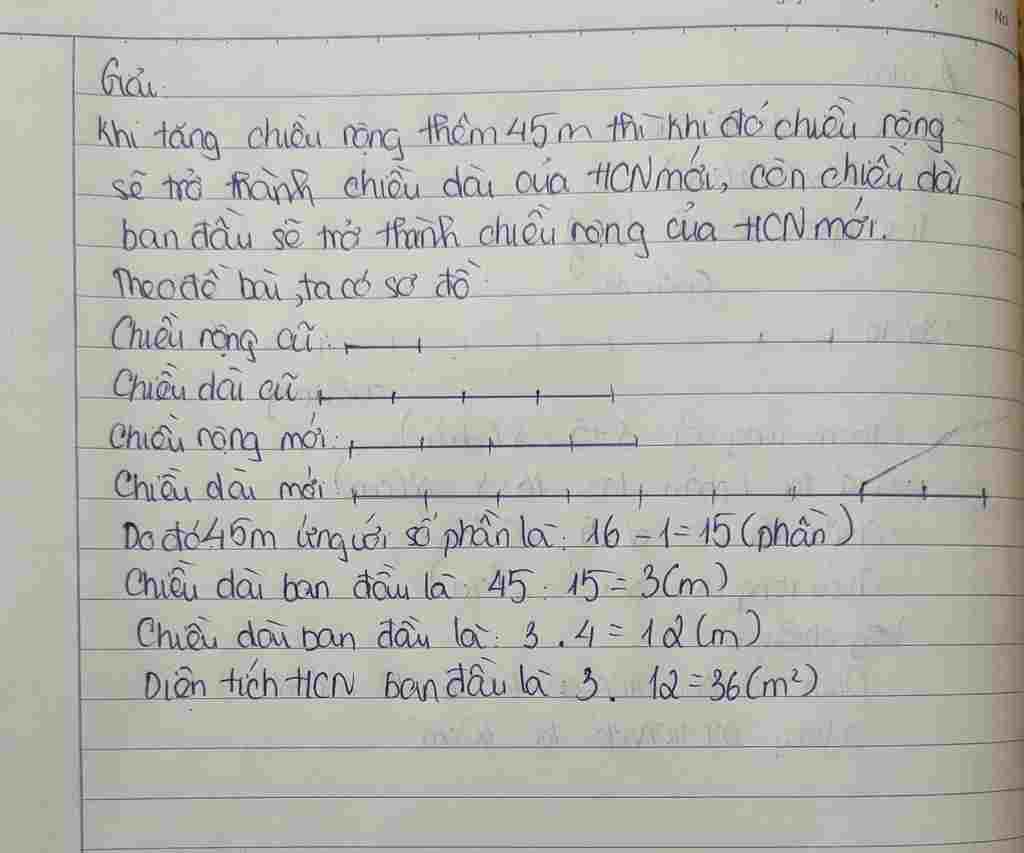 No
Giải:
Khi tăng chiều rộng thêm 45m thì khi đó chiều rộng
sẽ trở thành chiều dài của HCN mới, còn chiều dài
ban đầu sẽ trở thành chiều rộng của HCN mới.
Theo đề bài, ta có sơ đồ
Chiều rộng cũ:
Chiều dài cũ
Chiều rộng mới:
Chiều dài mới
Do đó 45m ứng với số phần là: 16 - 1 = 15 (phần)
Chiều dài ban đầu là: 45 : 15 = 3 (m)
Chiều dài ban đầu là: 3 . 4 = 12 (m)
Diện tích HCN ban đầu là: 3 . 12 = 36 (m²)